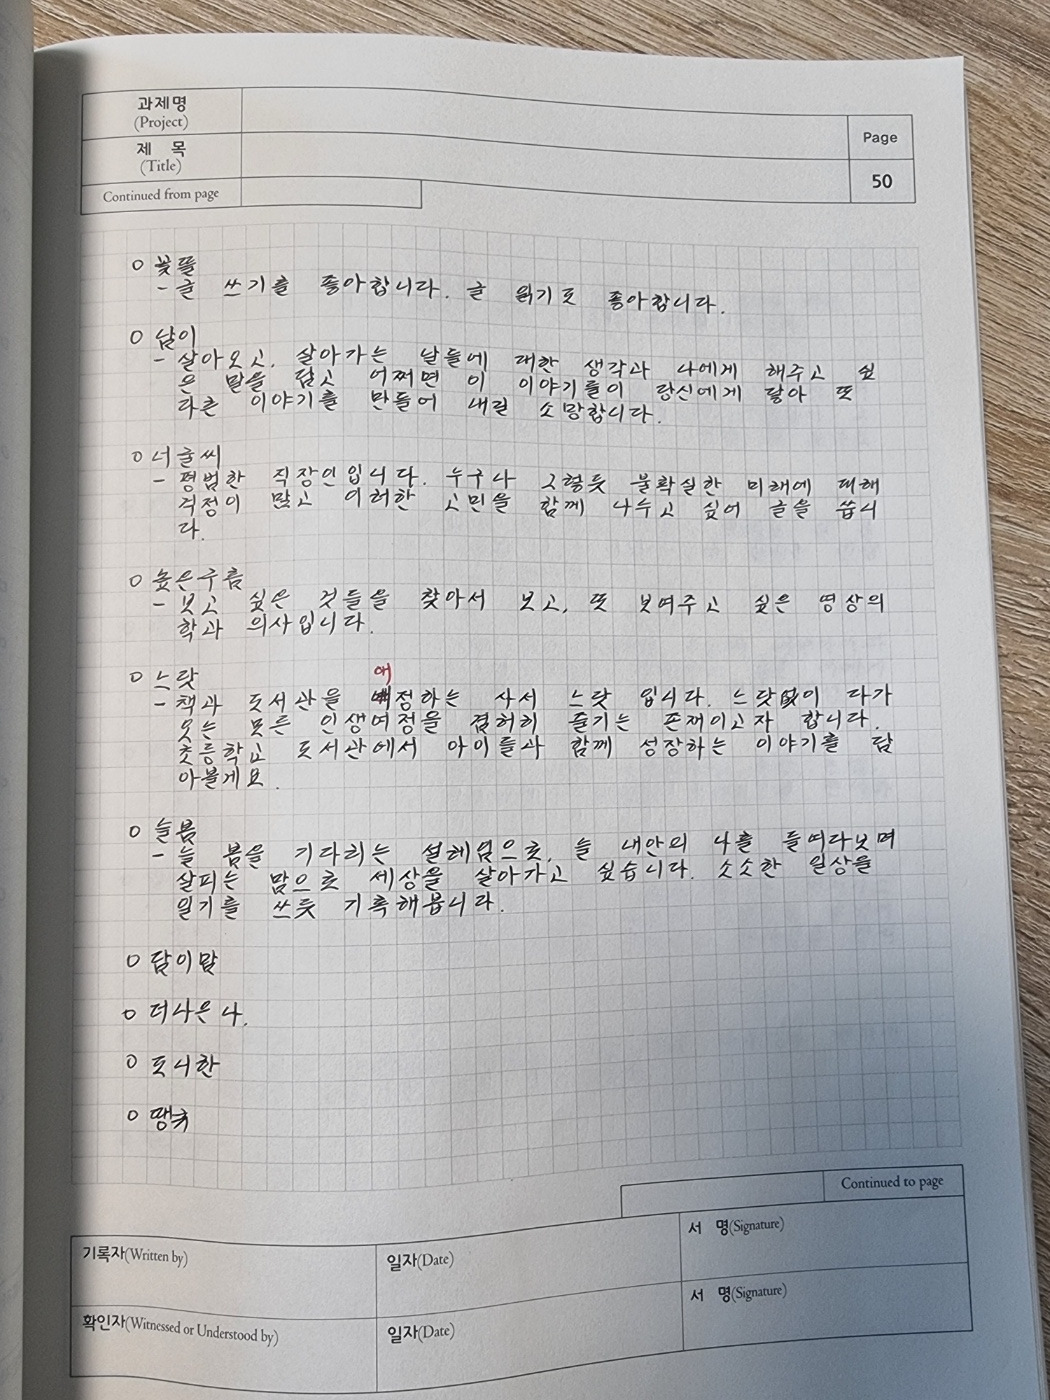 과제명
(Project)
제 목
(Title)
Continued from page
Page
50
○ 꽃뜰
- 글 쓰기를 좋아합니다. 글 읽기도 좋아합니다.
○ 낢이
- 살아오고, 살아가는 날들에 대한 생각과 나에게 해주고 싶
은 말을 담고 어쩌면 이 이야기들이 당신에게 닿아 또
다른 이야기를 만들어 내길 소망합니다.
○ 너글씨
- 평범한 직장인입니다. 누구나 그렇듯 불확실한 미래에 대해
걱정이 많고 이러한 고민을 함께 나누고 싶어 글을 씁니
다.
○ 높은구름
- 보고 싶은 것들을 찾아서 보고, 또 보여주고 싶은 영상의
학과 의사입니다.
○ 느랏
- 책과 도서관을 애정하는 사서 느랏 입니다. 느랏없이 다가
오는 모든 인생여정을 겸허히 즐기는 존재이고자 합니다.
초등학교 도서관에서 아이들과 함께 성장하는 이야기를 담
아볼게요.
○ 늘봄
- 늘 봄을 기다리는 설레임으로, 늘 내안의 나를 들여다보며
살피는 맘으로 세상을 살아가고 싶습니다. 소소한 일상을
일기를 쓰듯 기록해봅니다.
○ 담이맘
○ 더나은 나.
○ 도니한
○ 땡초
Continued to page
기록자(Written by)
일자(Date)
서 명(Signature)
확인자(Witnessed or Understood by)
일자(Date)
서 명(Signature)